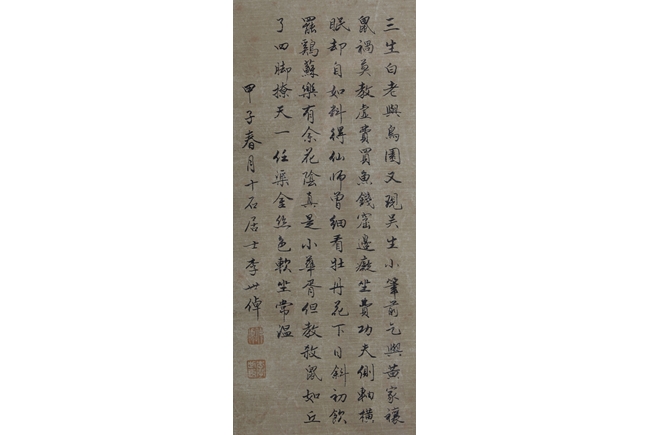 三生白老與烏圓又現吳生小筆前乞與黃家禳
鼠禍莫教虛費買魚錢窟邊癡坐費功夫側輥橫
眠却自如料得仙師曾細看牡丹花下日斜初飲
罷鷄蘇樂有余花陰真是小華胥但教殺鼠如丘
了四脚撩天一任渠金絲色軟坐常温
甲子春月十石居士李世倬